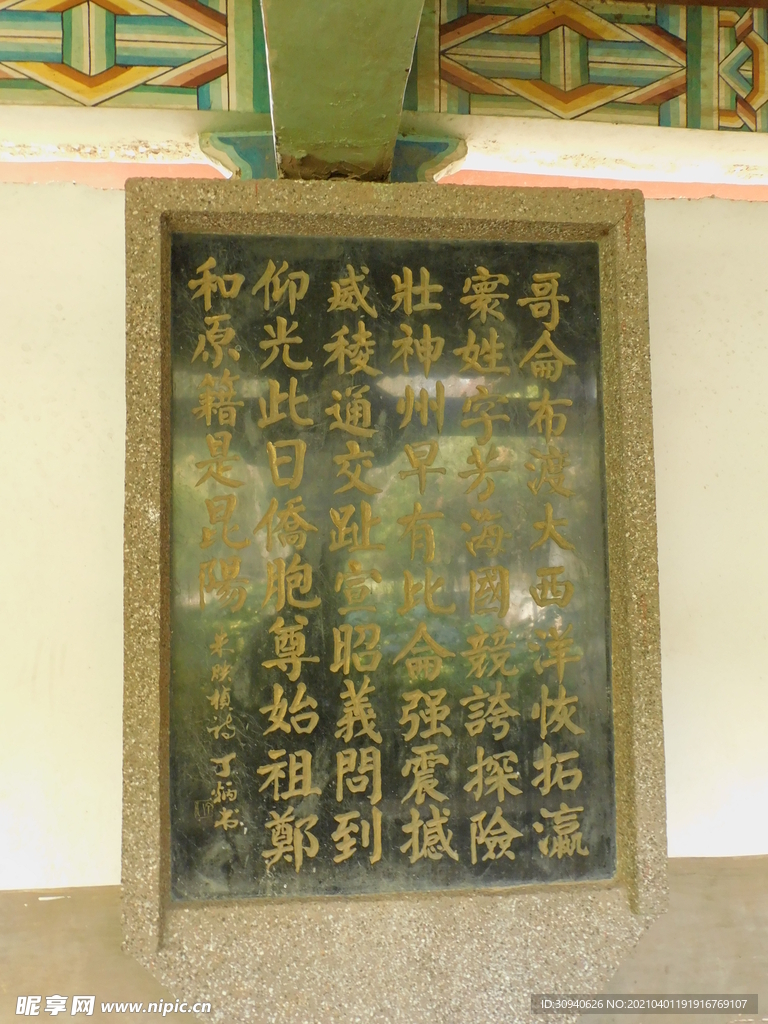 哥侖布渡大西洋恢拓瀛
寰姓字芳海國競誇探險
壯神州早有比侖强震撼
威稜通交趾宣昭義問到
仰光此日僑胞尊始祖鄭
和原籍是昆陽
朱映楨詩 丁炳书
昵享网 www.nipic.cn
ID:30940626 NO:20210401191916769107